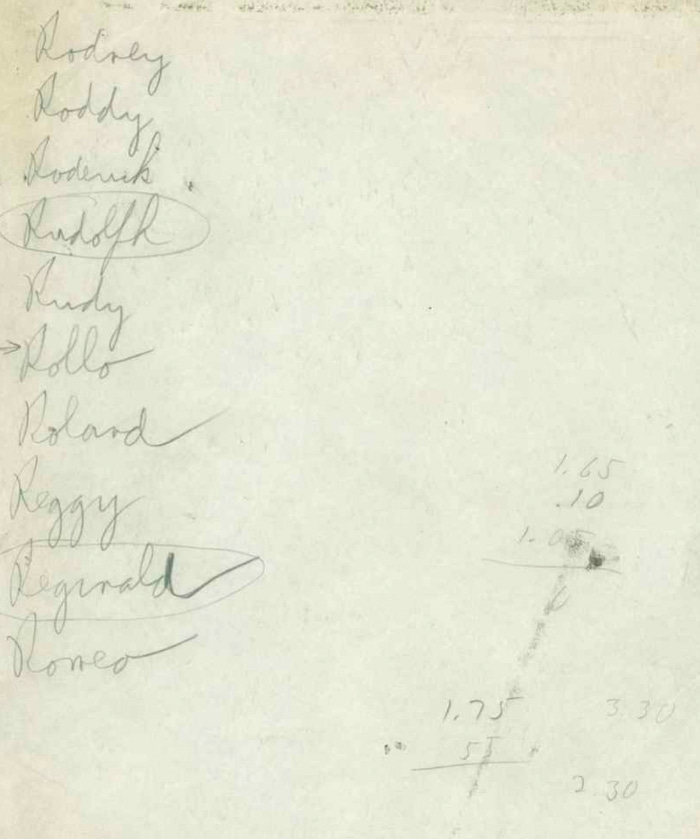 Rodney
Roddy
Roderick
Rudolph
Rudy
Rollo
Roland
Reggy
Reginald
Romeo
1.65
.10
1.05
6
1.75 3 30
55
2 30